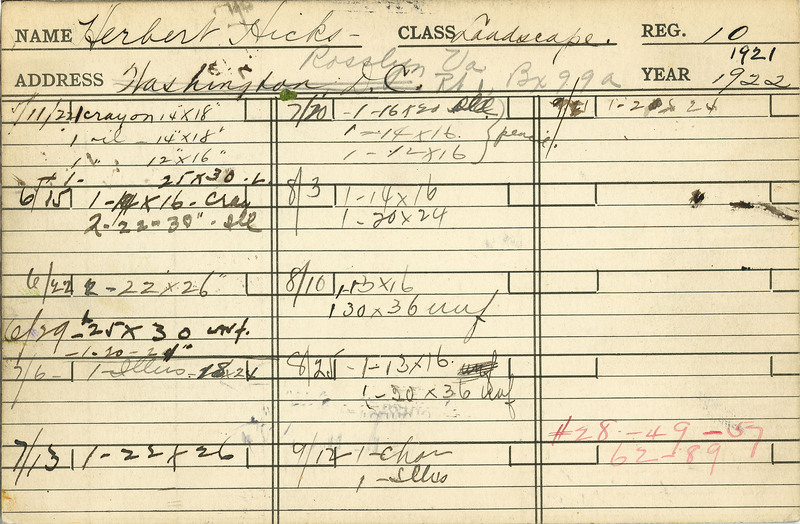 NAME Herbert Hicks - CLASS Landscape. REG. 10
1921
Rosslyn Va
ADDRESS Washington, D.C. Rt 1 Bx 99a YEAR 1922
7/11/22 1 crayon 14"X18"
1 oil - 14"X18"
1 " 12"X16"
+ 1- 25X30
6/15 1-14X16 - Cray
2-22-30" - Ill
6/22 2 - 22 X 26"
6/29 - 25 X 30 unf.
- 1-20-24"
7/6- 1-Illus. 18x24
7/13 1-22X26
7/20 -1-16X20 Ill
1-14X16. pencil
1-12X16
8/3 1-14X16
1-20X24
8/10 1-13X16
1 30X36 unf
8/25 -1-13X16.
1-30X36 unf
9/12 -1-Char
1-Illus
1-20 x 24
#28-49-57
62-89